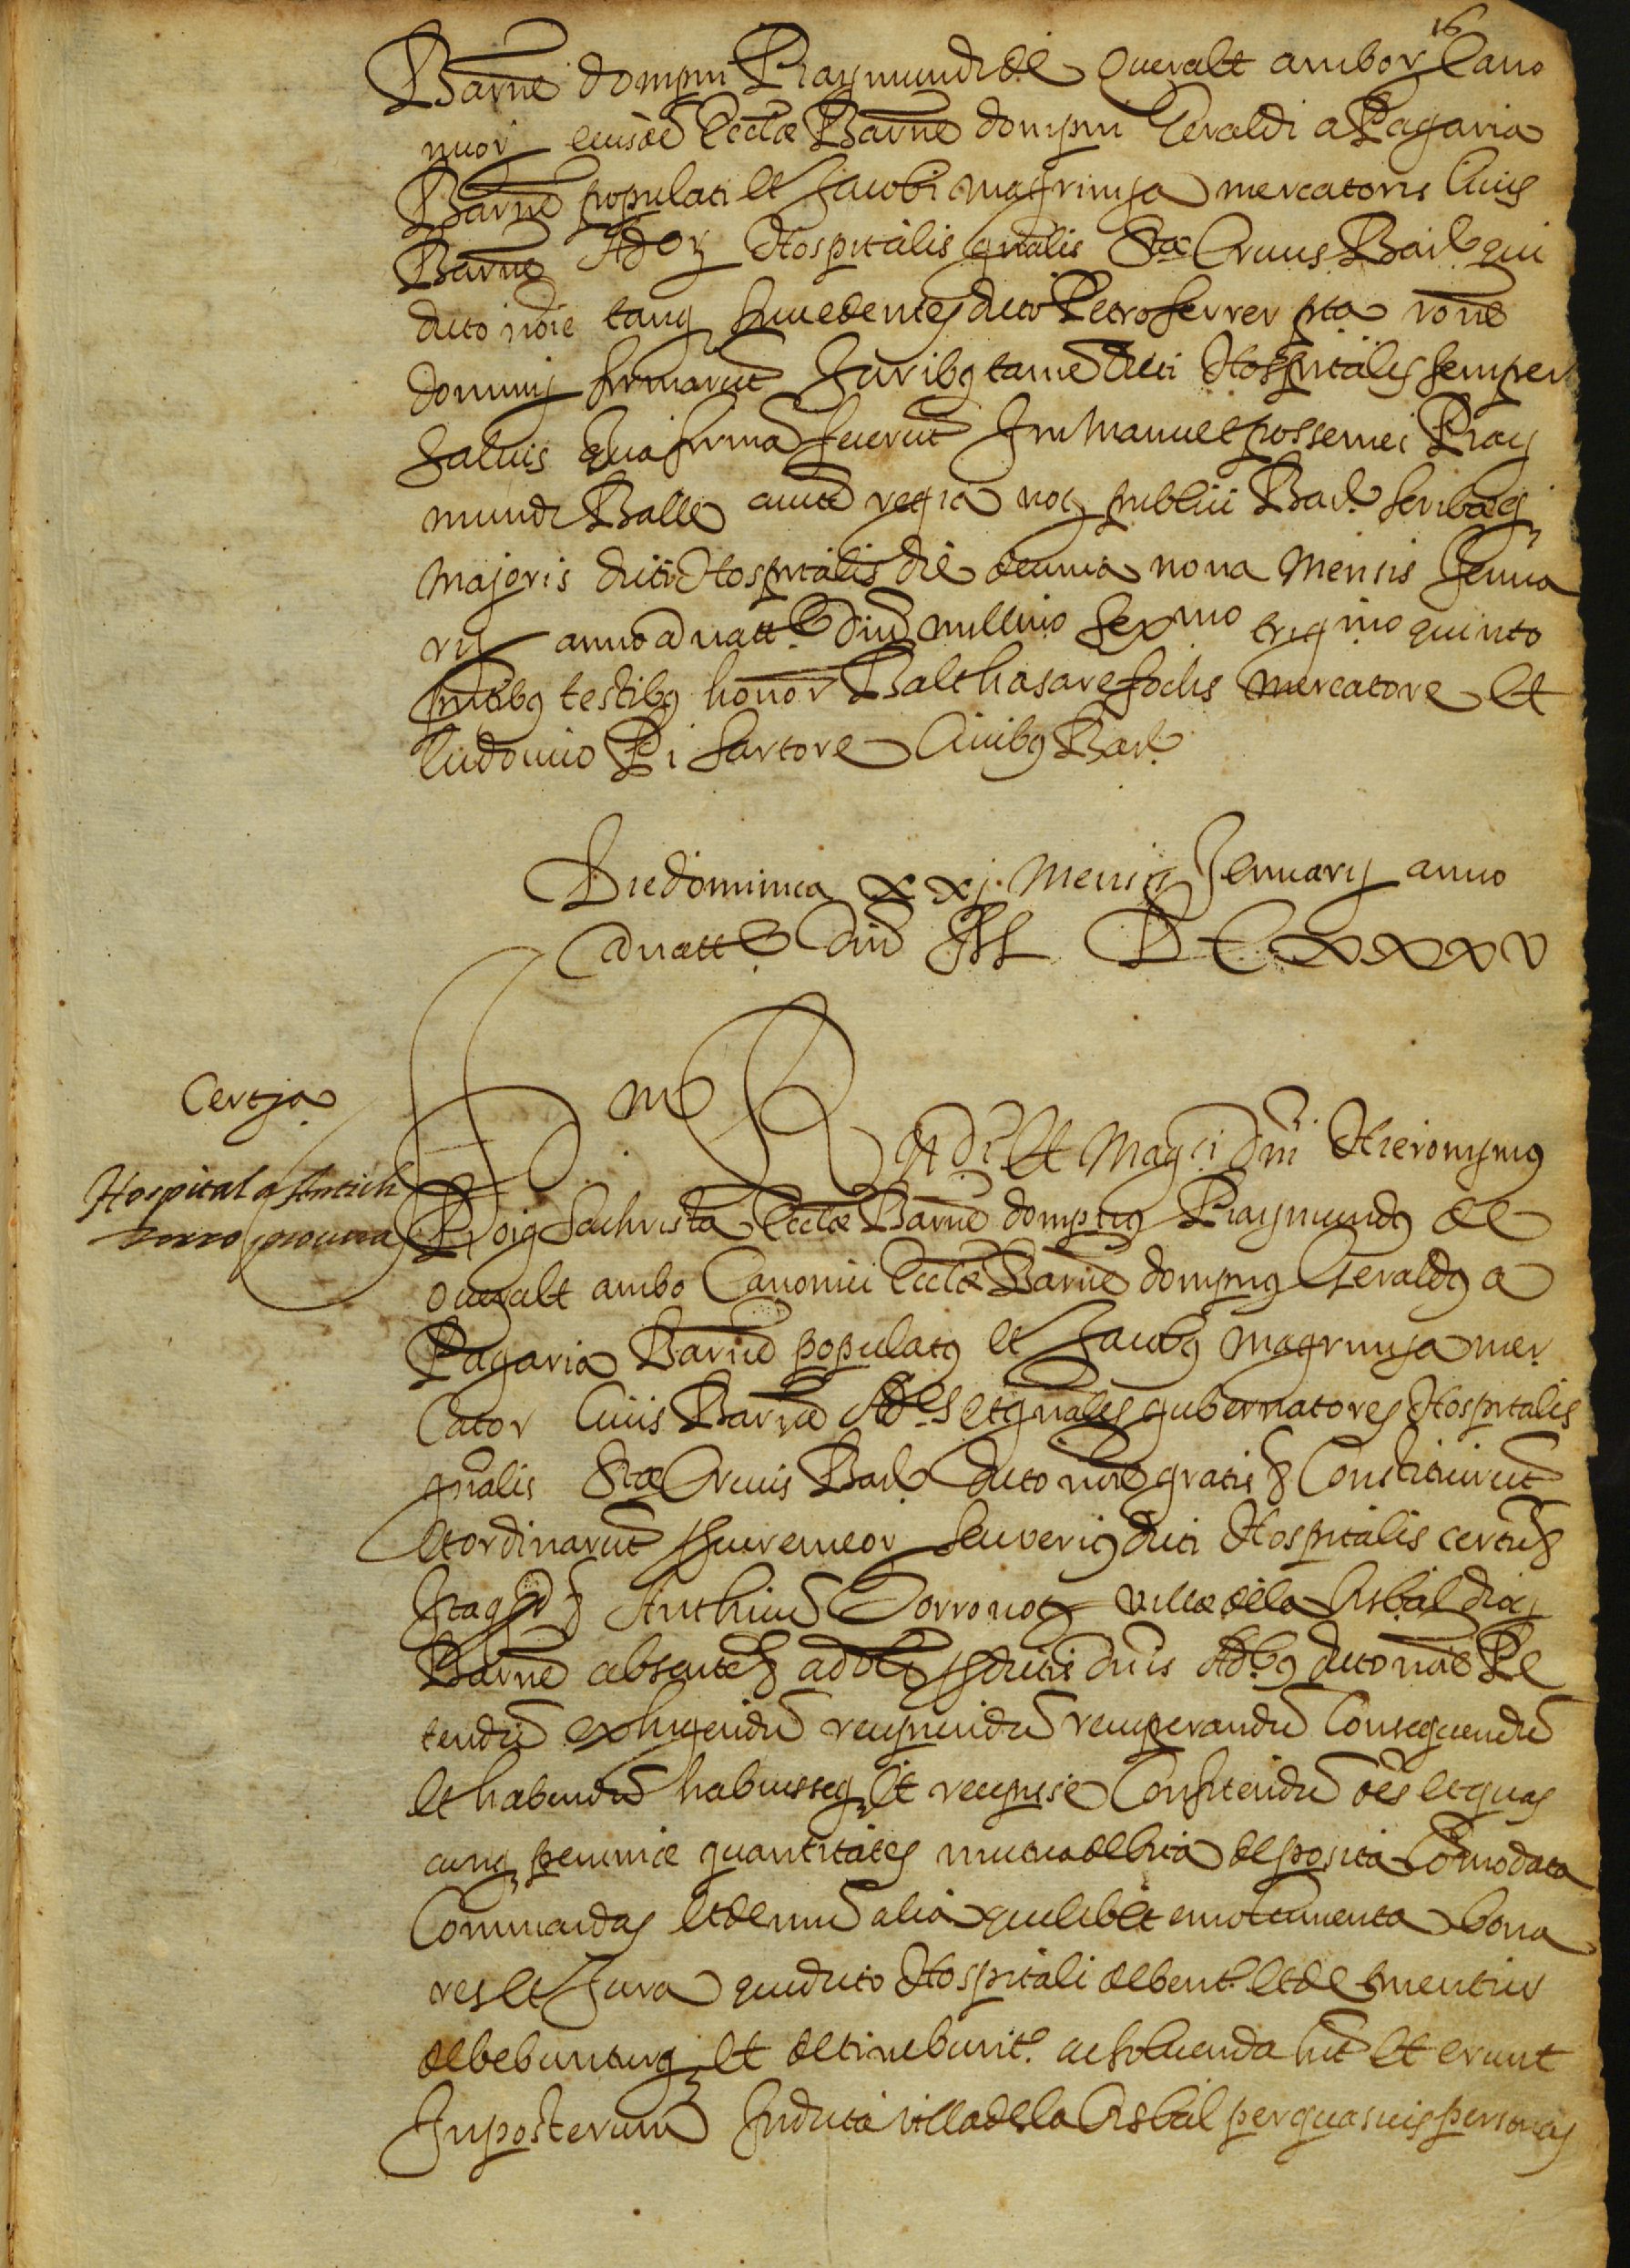 16
Barne dompni Raymundi de Queralt ambor Cano
nuor eiusde Eccłæ Barne dompni Geraldi a Pagaria
Barne populati et Jacobi Magrinya mercatoris Civis
Barne Ador Hospitalis gnalis Stæ Crucis Barł qui
dicto noie tanq succedentes dicto Petro Ferrer pta rone
dominij firmarut Juribq tame dicti Hospitalis semper
salvis Qua firma fecerut In manu et posse mei Ray
mundi Balle auıte regia not publici Barł scribæq
majoris dicti Hospitalis die decima nona Mensis Jenua
rij anno a natte Dni millmo sexmo trigmo quinto
pntibq testibq honor Balthasare Fochs mercatore et
Ludovico Pi sartore Civibq Barł
Die dominica xxj Mensis Jenuarij anno
a natte Dni M DCXXXV
Certja
Hospital a Antich
Torro procura
Adi et Magci Dni Hieronymq
Roig Sachrista Eccłæ Barne dompnq Raymundq de
Queralt ambo Canonici Eccłæ Barne dompnq Geraldq a
Pagaria Barne populatq et Jacobq Magrinya mer
cator Civis Barne Ades et gnales gubernatores Hospitalis
gnalis Stæ Crucis Barł dicto noie gratis & Constituerut
et ordinarut procuremeor seu verius dicti Hospitalis certu &
Itaq qd & Anthicu Torro not villæ de la Bisbal dioc
Barne absente & ad videlt p dictis dnis Adbq dicto noie Pe
tendu exhigendu recipiendu recuperandu Consequendu
et habendu habuisseq et recepisse Confitendu oes et quas
cunq peccuniæ quantitates mutua debita deposita Comodata
Commandas et demu alia quelibet emolumenta bona
res et Jura que dicto Hospitali debent et detinentur
debebunturq et detinebunt ac solvenda sut et erunt
Inposterum In dicta villa de la Bisbal per quasvis personas